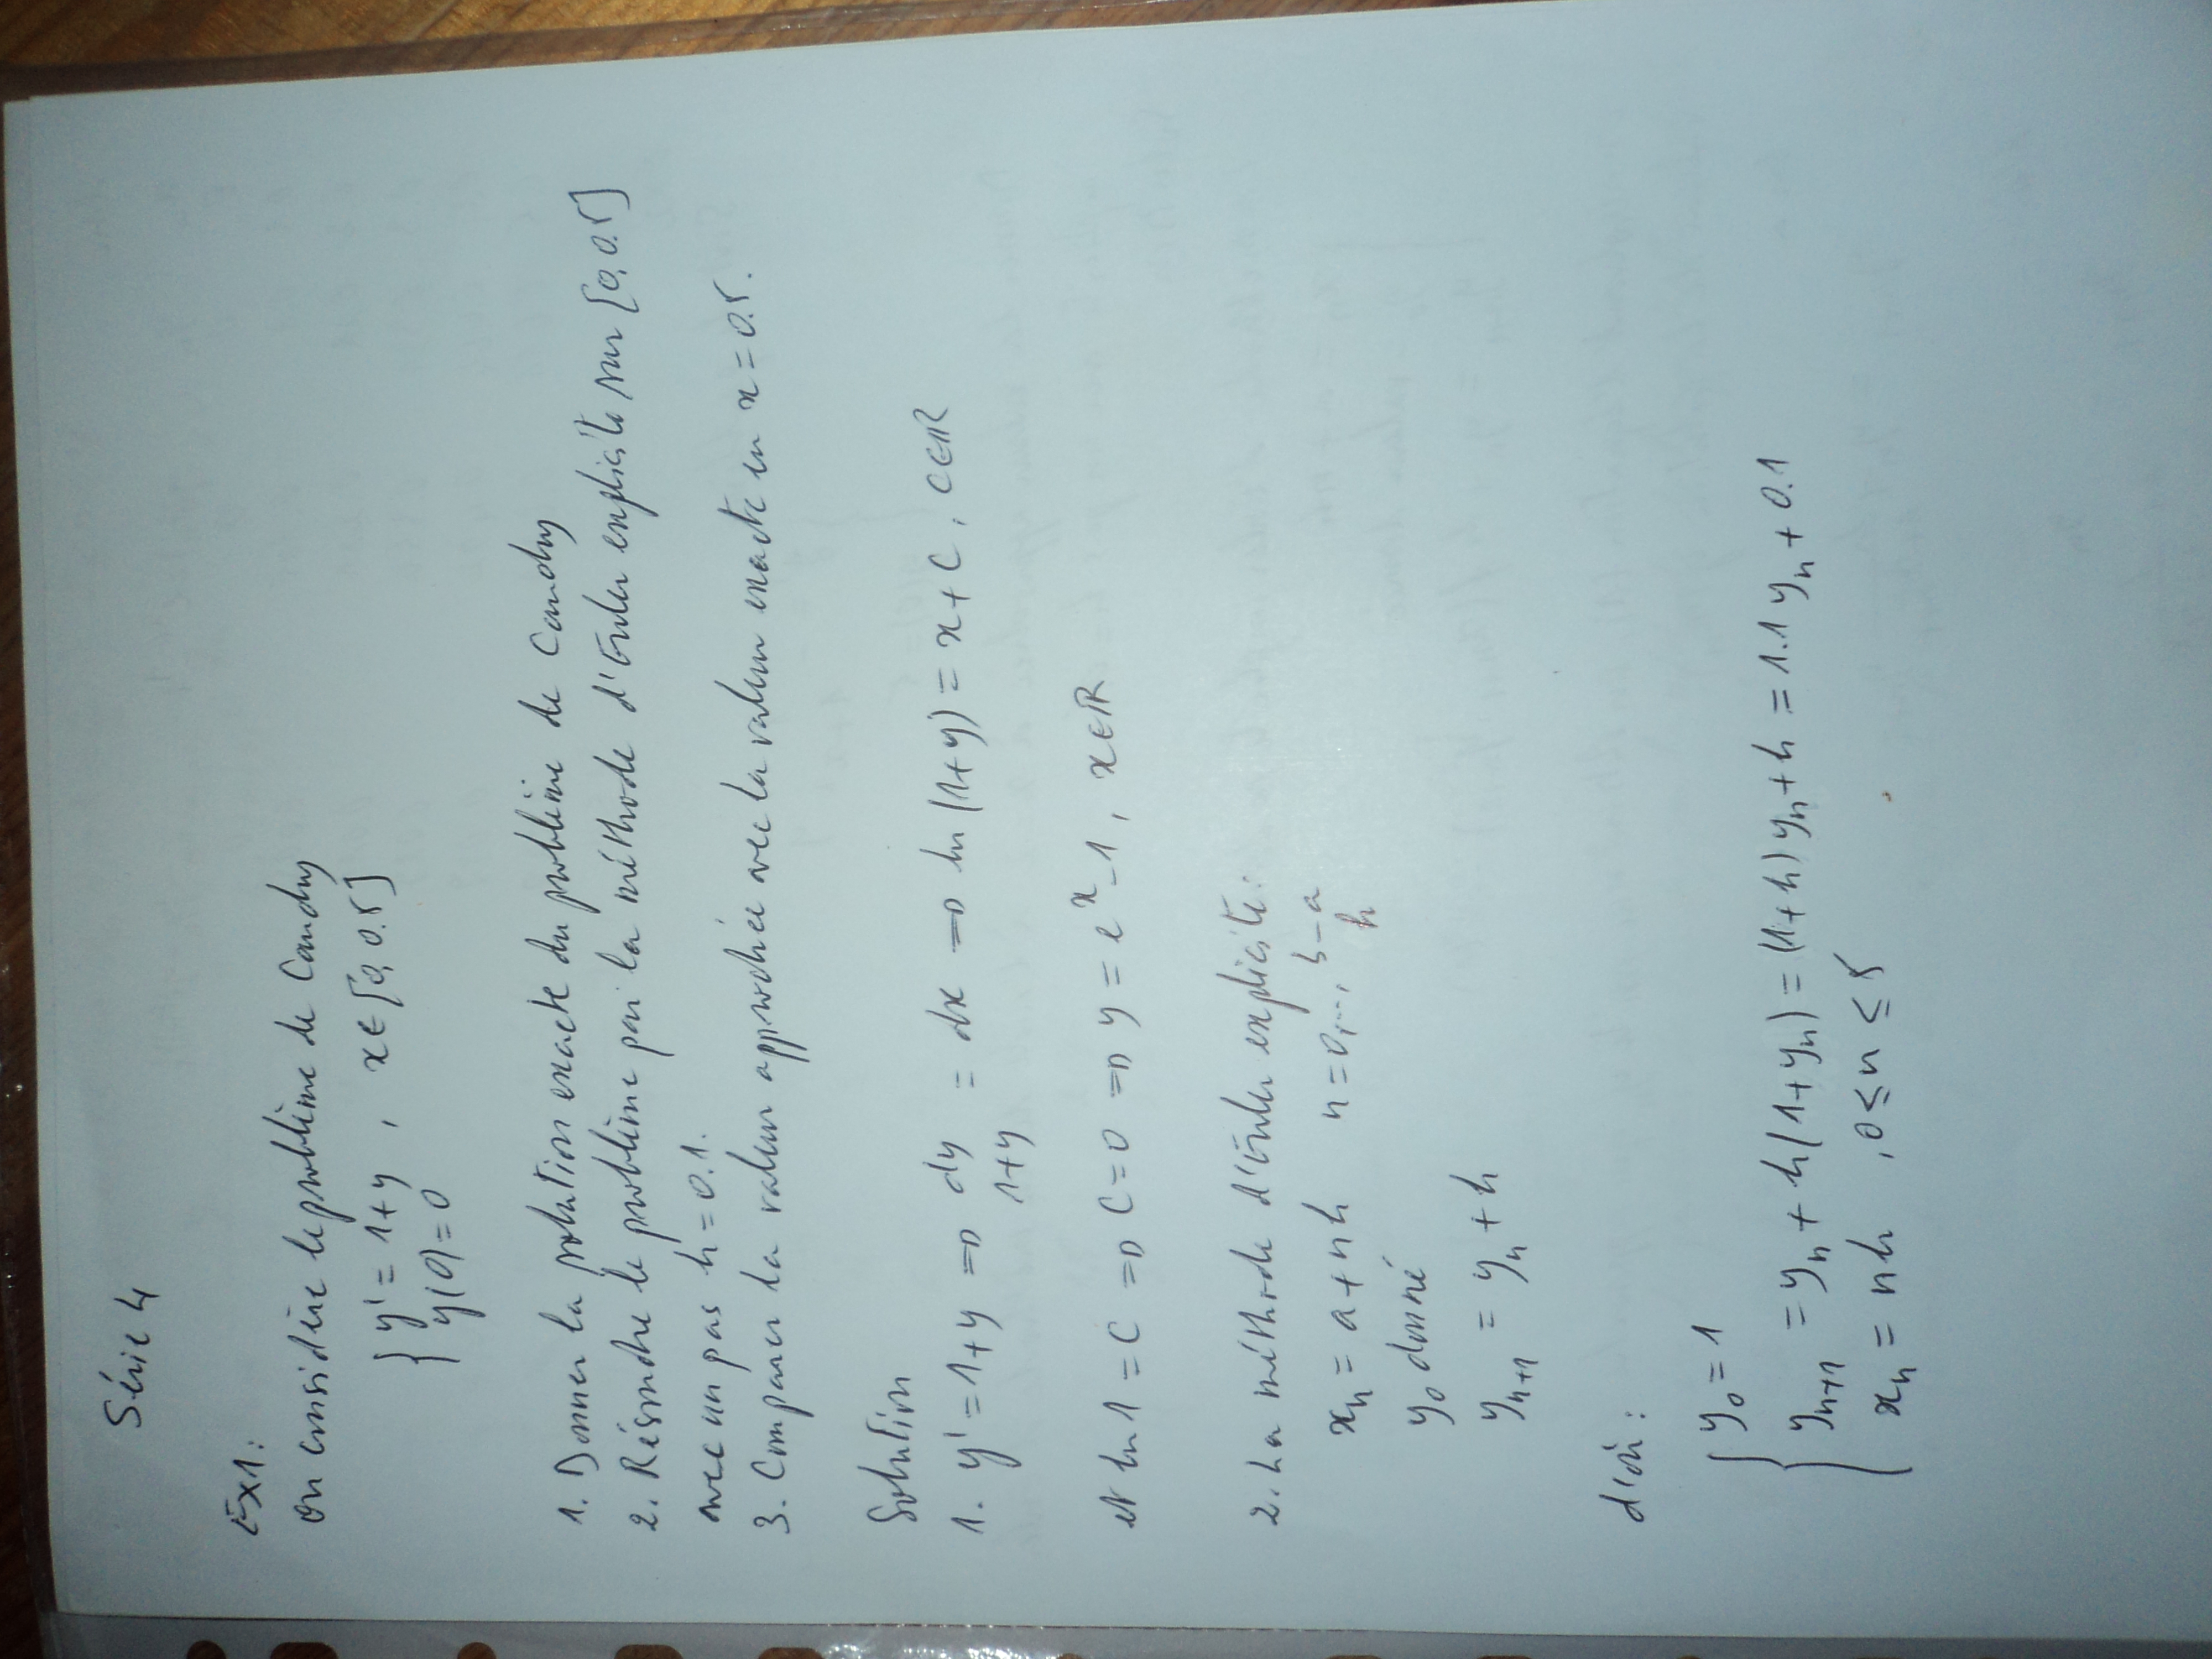 Série 4
Ex1:
on considère le problème de Cauchy
{ y' = 1+y , x∈[0, 0.5]
y(0)=0
1. Donner la solution exacte du problème de Cauchy
2. Résoudre le problème par la méthode d'Euler explicite sur [0, 0.5]
avec un pas h = 0.1.
3. Comparer la valeur approchée avec la valeur exacte en x = 0.5.
Solution
1. y' = 1+y ⇒ dy/(1+y) = dx ⇒ ln(1+y) = x + C, C∈ℝ
et ln 1 = C ⇒ C=0 ⇒ y = e^x - 1, x∈ℝ
2. La méthode d'Euler explicite:
x_n = a + nh n=0,..., (b-a)/h
y_0 donné
y_{n+1} = y_n + h
d'où:
{ y_0 = 1
y_{n+1} = y_n + h(1+y_n) = (1+h) y_n + h = 1.1 y_n + 0.1
x_n = nh , 0 ≤ n ≤ 5